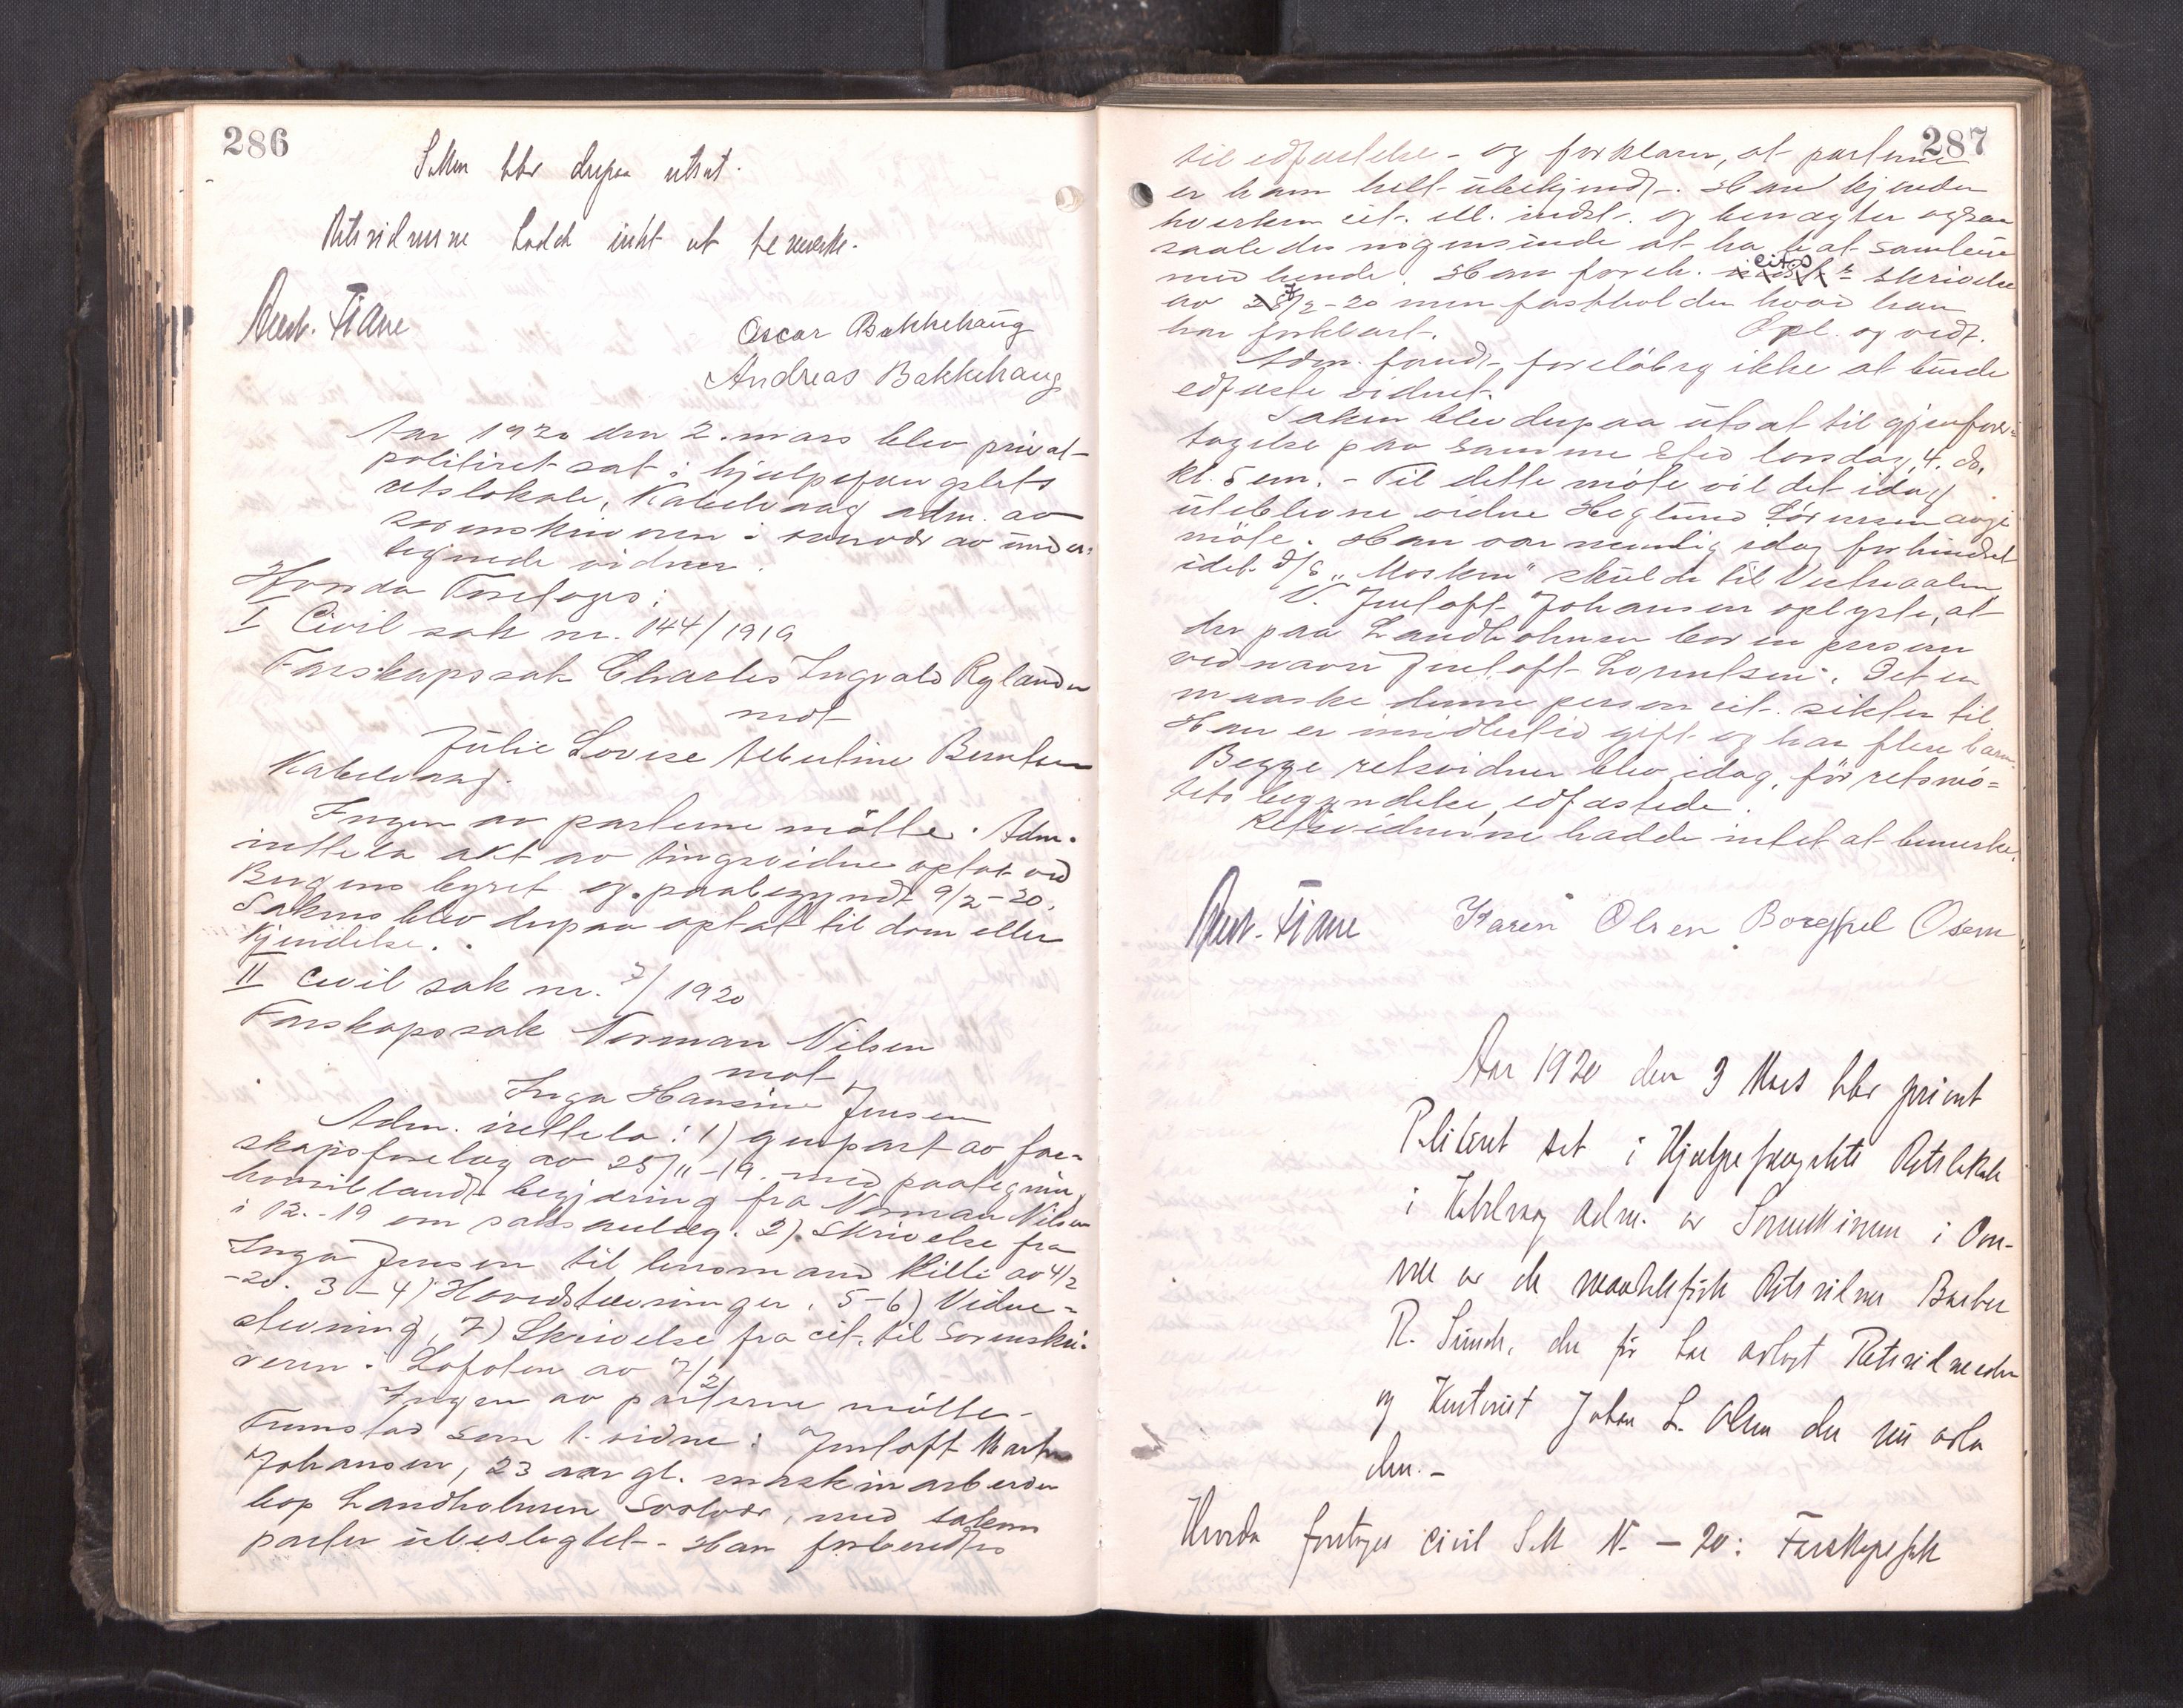 286
Saken blev derpaa utsat.
Retsvidnerne hadde intet at bemerke.
Oscar Bakkehaug
Andreas Bakkehaug
Aar 1920 den 2. mars blev privat-
politiret sat i hjælpefængslets
retslokale, Kabelvaag adm. av
sorenskriveren i overvær av under-
tegnede vidner.
Hvorda Foretoges:
I Civil sak nr. 144/1919
Farskapssak Charles Ingvald Rylander
mot
Julie Lovise Albertine Berntsen
Kabelvaag.
Ingen av parterne mötte. Adm.
irettela akt av tingsvidne optat ved
Bergens byret og paabegyndt 9/2-20.
Sakens blev derpaa optat til dom eller
kjendelse.
II Civil sak nr. 7/1920
Farskapssak Norman Nilsen
mot
Inga Hansine Jensen
Adm. irettela: 1) gjenpart av far-
skapsforelæg av 25/11-19. med paategning
hvoriblandt begjæring fra Norman Nilsen
i 12.-19 om saksanlæg. 2) Skrivelse fra
Inga Jensen til lensmand Killi av 4/2
-20. 3-4) Hovedstevninger. 5-6) Vidne-
stevning, 7) Skrivelse fra cit. til Sorenskri-
veren i Lofoten av 7/2
Ingen av parterne mötte-
Fremstod som 1. vidne: Jentoft Martin
Johansen, 23 aar gl. maskinarbeider
bop Landholmen Svolvær, med sakens
parter ubeslegtet. Han forberedtes
287
til edfæstelse - og forklarer, at parterne
er ham helt ubekjendt-. Han kjender
hverken cit. ell. indst. og benægter ogsaa
saaledes nogensinde at ha hat samleie
med hende. Han foreh. cits skrivelse
av 7/2-20 men fastholder hvad han
har forklart. Opl. og vedt.
Adm. fandt foreløbig ikke at burde
edfæste vidnet.
Saken blev derpaa utsat til gjenfore-
tagelse paa samme sted torsdag 4. ds.
kl. 5 em. - Til dette möte vil det idag
uteblevne vidne Høglund Sörensen avgi
möte. Han var nemlig idag forhindret
idet D/S "Mosken" skulde til Vestraalen
V. Jentoft Johansen oplyste, at
der paa Landholmen bor en person
ved navn Jentoft Lorentsen. Det er
maaske denne person cit. sikter til.
Han er imidlertid gift og har flere barn.
Begge retsvidner blev idag, för retsmö-
tets begyndelse, edfæstede.
Retsvidnerne hadde intet at bemerke.
Karen Olsen
Aar 1920 den 3 Mars blev privat
Politiret sat i Hjælpefængslets Retslokale
i Kabelvaag adm. av Sorenskriveren i Over-
vær av de mandelfrie Retsvidner Barber
R. Sund, der før har avlagt Retsvidneeden
og Kontorist Johan L. Olsen der nu avla
den.-
Hvorda foretoges civil Sak N. - 20: Farskapssak